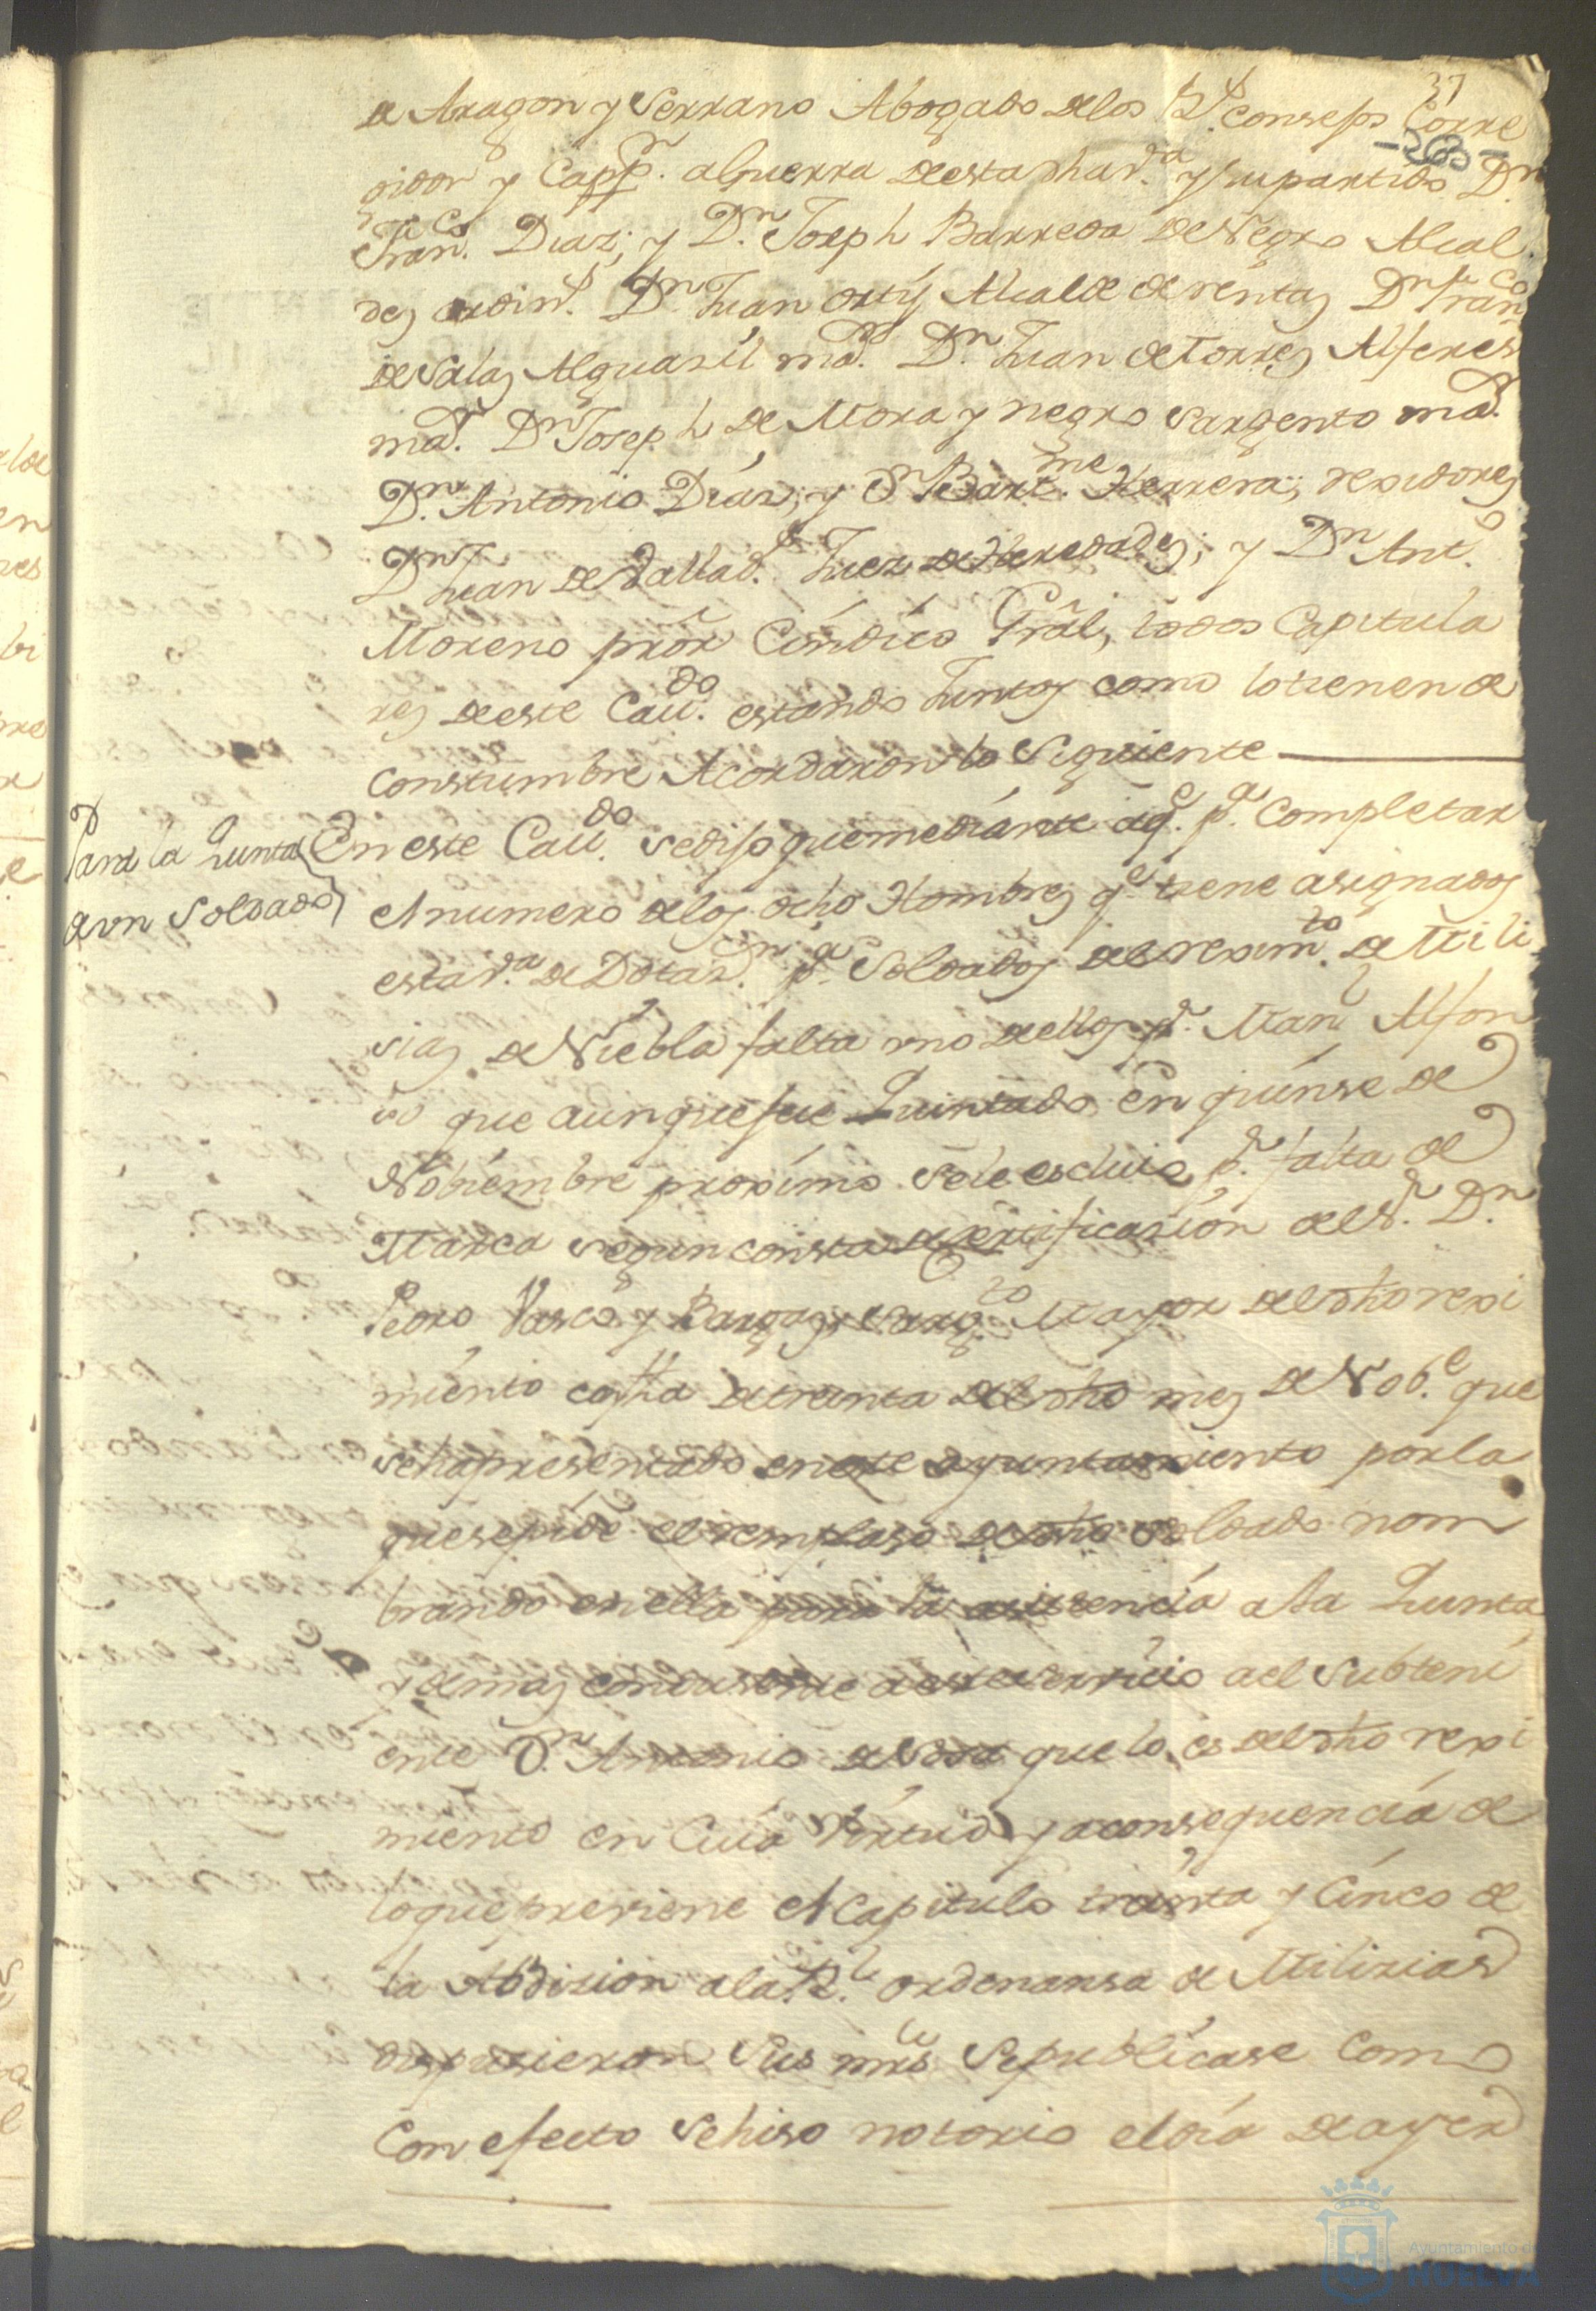 37
de Aragon y Serrano Abogado delos Rs. Consejos Corre
-263-
gidor y Capp.n alguerra desta dha v.a y supartido Dn.
Fran.co Diaz; y Dn. Joseph Barreda de Negro Alcal
des ordin.s Dn. Juan ortiz Alcalde de rentas Dn. Fran.co
de Salas Alguazil mär. Dn. Juan de Torres Alferes
mär. Dn. Joseph de Mora y negro Sargento mär.
Dn. Antonio Diaz; y Dn. Bart.me Herrera; rexidores
Dn. Juan de Vallad.d Juez de Heredades; y Dn. Ant.o
Moreno prör Cindico Gräl, todos Capitula
res deeste Cau.do estando Juntos como lotienen de
constumbre Acordaron lo Siguiente
Para la Quinta
de vn Soldado
En este Cau.do sediso quemediante aq.e p.a Completar
el numero delos ocho Hombres q.e tiene asignados
esta v.a de Dotaz.n p.a Soldados del rexim.to de Mili
sias de Niebla falta uno dellos p.r Man.l Alfon
so que aunquefue Quintado en quinse de
Nobiembre proximo sele escluio p.r falta de
Marca segun consta de certificasion del S.r Dn.
Pedro Vasco y Bargas, Sarg.to Mayor deldho rexi
miento cofha detreinta deldho mes de Nob.e que
sehapresentado eneste ayuntamiento porla
quesepide el remplaso deldho soldado nom
brando enella para la asistencia ala Quinta
y demas condusente a esteserbicio ael Subteni
ente Dn. Antonio de Soza que lo es deldho rexi
miento en Cuia Virtud y aconsequencia de
loqueprebiene el Capitulo treinta y Cinco de
la Addizion ala R.l ordenansa de Milizias
dispusieron Sus mrds Sepublicase Como
Con efecto Sehiso notorio eldia deayer
Ayuntamiento de
HUELVA